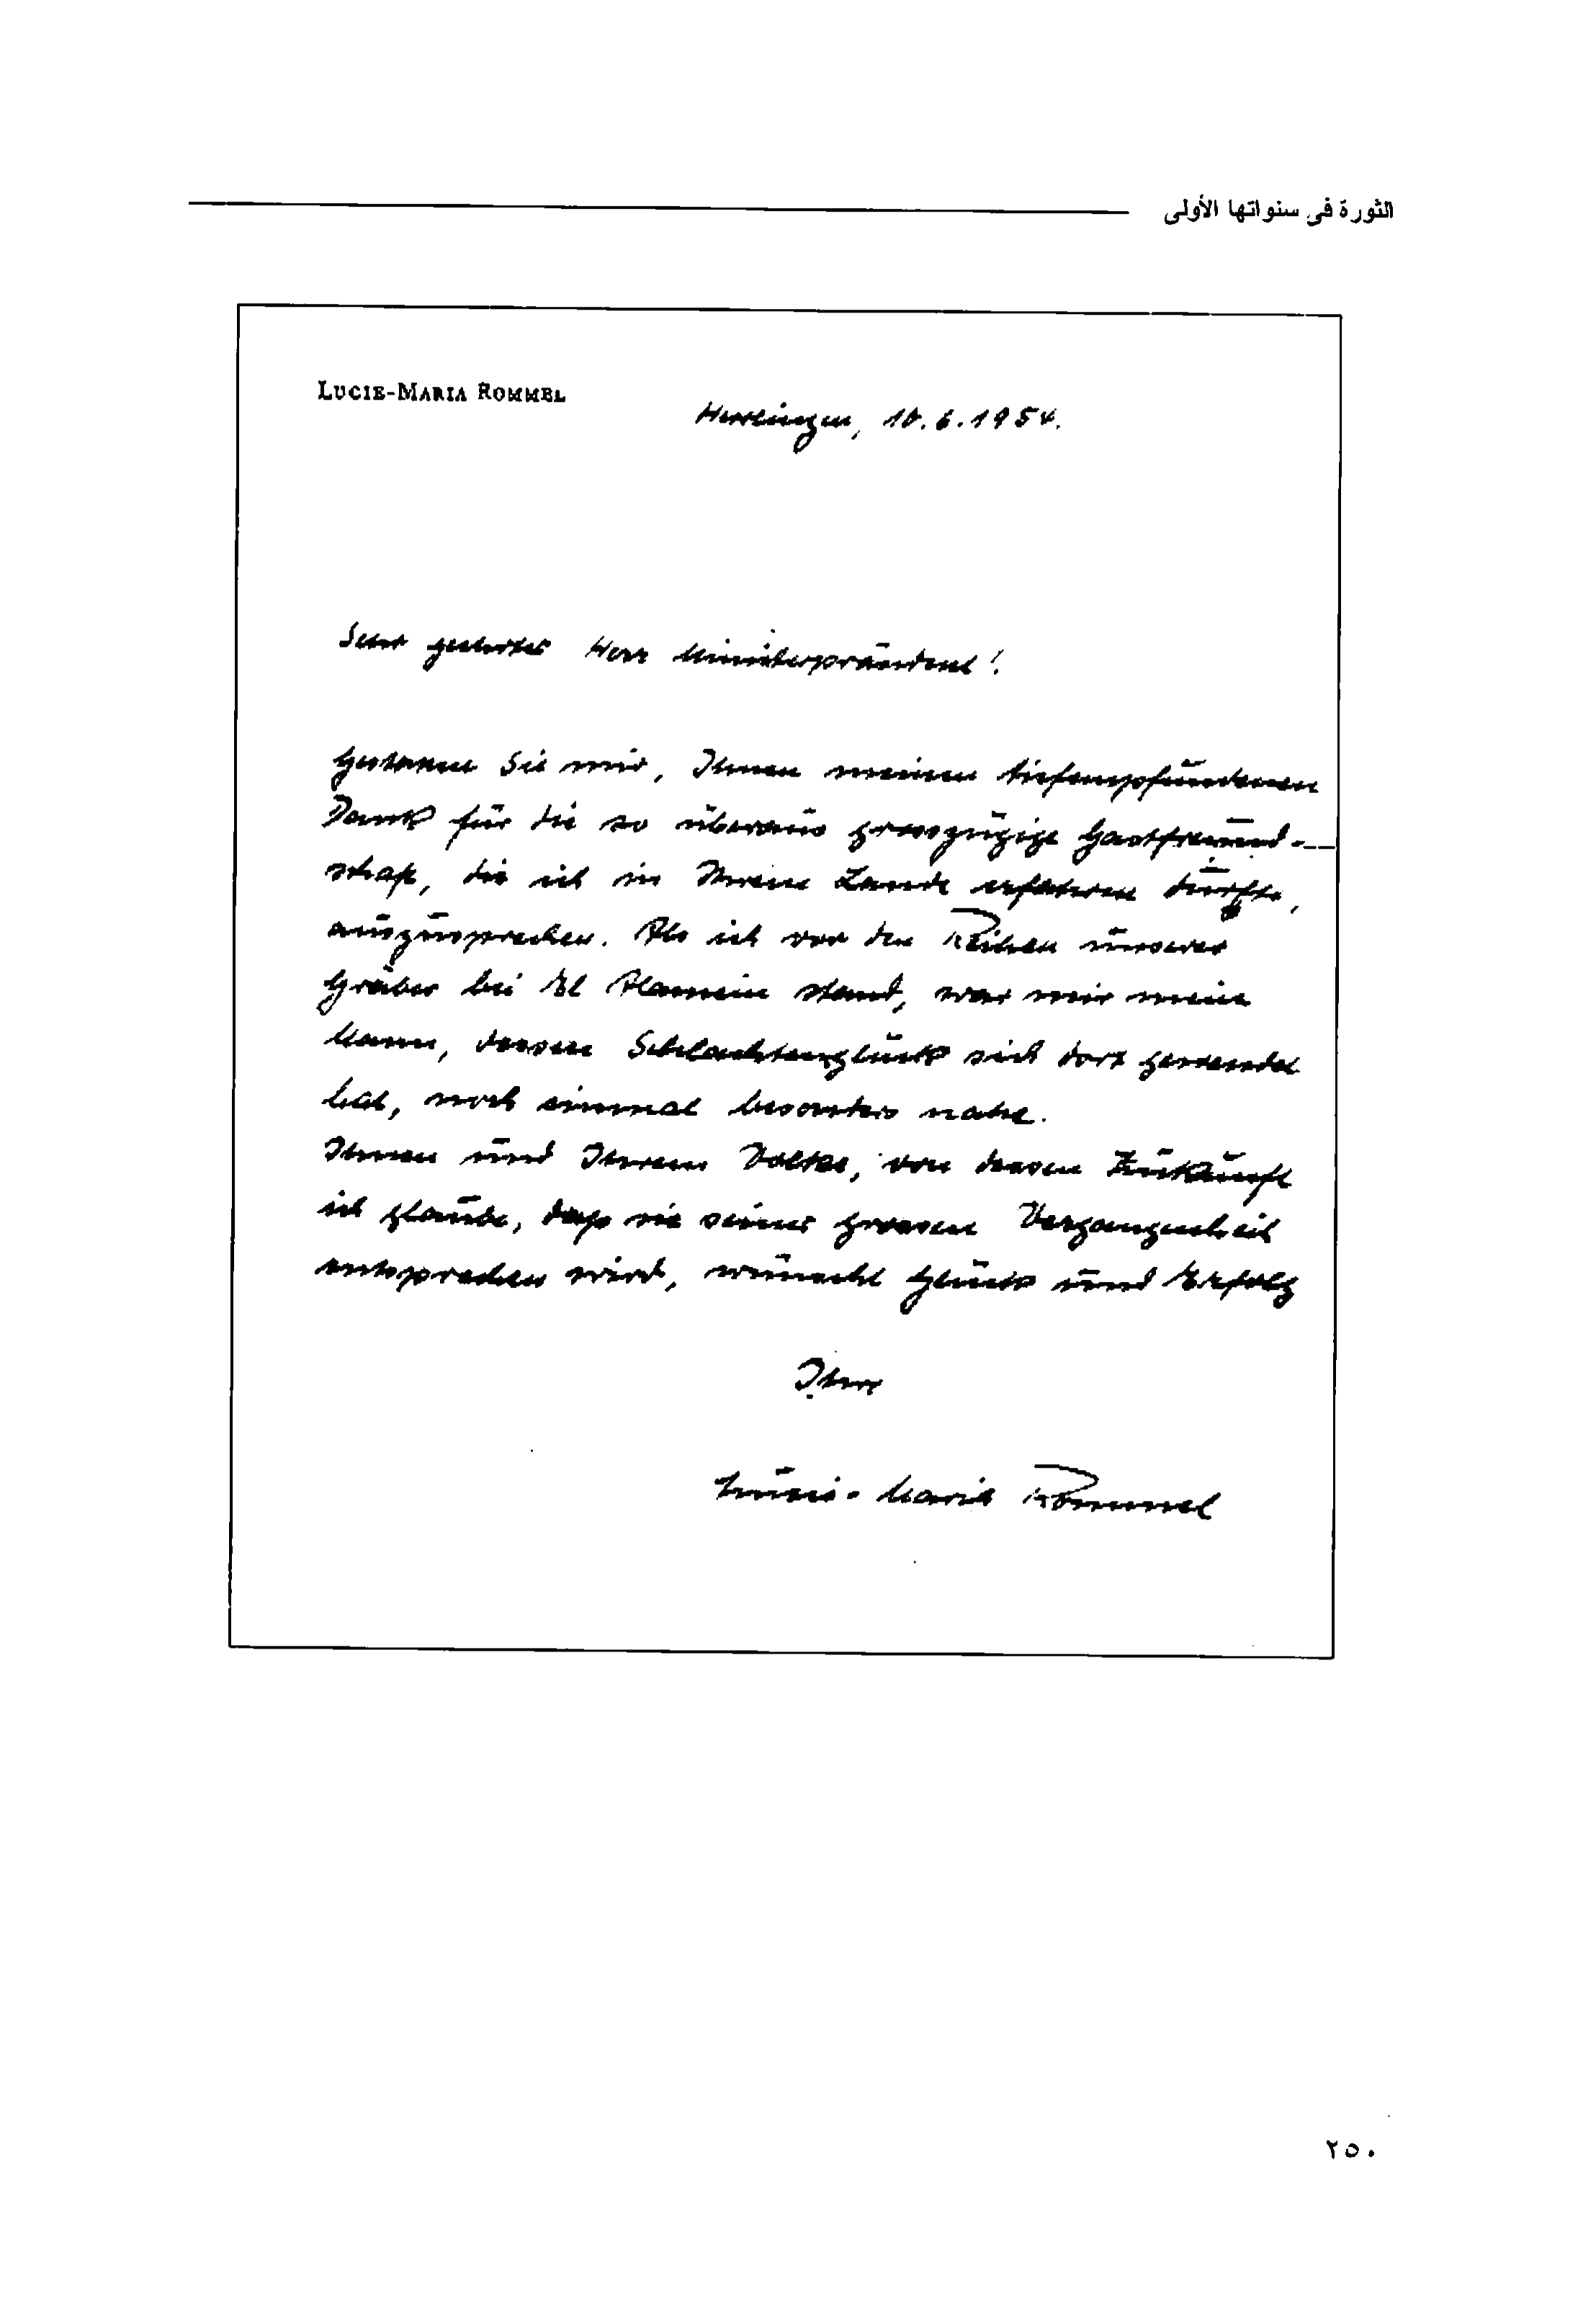 الثورة فى سنواتها الأولى
LUCIE-MARIA ROMMEL
Herrlingen, 10.6.1954.
Sehr geehrter Herr Ministerpräsident!
Gestatten Sie mir, Ihnen meinen tiefempfundenen
Dank für die so überaus grosszügige Gastfreund-
schaft, die ich in Ihrem Lande erfahren durfte,
auszusprechen. Als ich vor den Reihen unserer
Gräber bei El Alamein stand, war mir mein
Mann, dessen Schlachtenglück sich dort gewendet
hat, noch einmal besonders nahe.
Ihnen und Ihrem Volke, von dessen Zukunft
ich glaube, dass sie seiner grossen Vergangenheit
entsprechen wird, wünscht Glück und Erfolg
Ihre
Lucie-Maria Rommel
٢٥٠